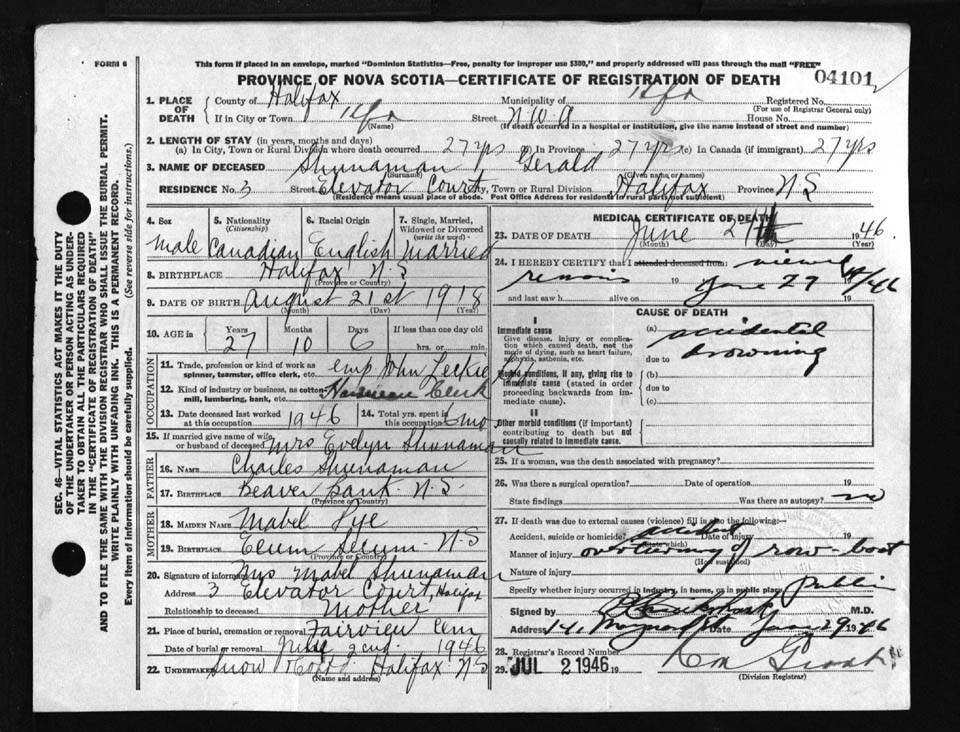 FORM 6
This form if placed in an envelope, marked "Dominion Statistics—Free, penalty for improper use $300," and properly addressed will pass through the mail "FREE"
PROVINCE OF NOVA SCOTIA—CERTIFICATE OF REGISTRATION OF DEATH
04101
1. PLACE OF DEATH
County of Halifax Municipality of Hfx Registered No.
(For use of Registrar General only)
If in City or Town Hfx Street N.W.A House No.
(Name) (If death occurred in a hospital or institution, give the name instead of street and number)
2. LENGTH OF STAY (in years, months and days)
(a) In City, Town or Rural Division where death occurred 27 yrs (b) In Province 27 yrs (c) In Canada (if immigrant) 27 yrs
3. NAME OF DECEASED Shunaman Gerald
(Surname) (Given names or names)
RESIDENCE No. 3 Street Elevator Court City, Town or Rural Division Halifax Province N.S
(Residence means usual place of abode. Post Office Address for residents in rural parts not sufficient)
4. Sex Male
5. Nationality (Citizenship) Canadian
6. Racial Origin English
7. Single, Married, Widowed or Divorced (write the word) Married
8. BIRTHPLACE Halifax N.S
(Province or Country)
9. DATE OF BIRTH August 21st 1918
(Month) (Day) (Year)
10. AGE in Years Months Days If less than one day old
27 10 6 hrs. or min.
OCCUPATION
11. Trade, profession or kind of work as spinner, teamster, office clerk, etc. emp. John Leckie
12. Kind of industry or business, as cotton mill, lumbering, bank, etc. Clerk
13. Date deceased last worked at this occupation 1946
14. Total yrs. spent in this occupation 6 mo
15. If married give name of wife or husband of deceased Mrs Evelyn Shunaman
FATHER
16. NAME Charles Shunaman
17. BIRTHPLACE Beaver Bank. N.S.
(Province or Country)
MOTHER
18. MAIDEN NAME Mabel Pye
19. BIRTHPLACE Ecum Secum. N.S
(Province or Country)
20. Signature of informant Mrs Mabel Shunaman
Address 3 Elevator Court, Halifax
Relationship to deceased Mother
21. Place of burial, cremation or removal Fairview Cem
Date of burial or removal July 2nd 1946
22. UNDERTAKER Snow Halifax NS
(Name and address)
MEDICAL CERTIFICATE OF DEATH
23. DATE OF DEATH June 1946
(Month) (Day) (Year)
24. I HEREBY CERTIFY that I attended deceased from: viewed
remains 19 June 29 /46
and last saw h alive on 19
CAUSE OF DEATH
I
Immediate cause
Give disease, injury or complication which caused death, not the mode of dying, such as heart failure, asphyxia, asthenia, etc.
(a) accidental
due to drowning
Morbid conditions, if any, giving rise to immediate cause (stated in order proceeding backwards from immediate cause).
(b)
due to
(c)
II
Other morbid conditions (if important) contributing to death but not causally related to immediate cause.
25. If a woman, was the death associated with pregnancy?
26. Was there a surgical operation? Date of operation 19
State findings Was there an autopsy? no
27. If death was due to external causes (violence) fill in also the following:—
Accident, suicide or homicide? accident Date of injury 19
Manner of injury overturning of row-boat
(How sustained)
Nature of injury
Specify whether injury occurred in industry, in home, or in public place public
Signed by M.D.
Address 141 Maynard St Date June 29 1946
28. Registrar's Record Number
29. JUL 2 1946 19
(Division Registrar)
SEC. 46—VITAL STATISTICS ACT MAKES IT THE DUTY
OF THE UNDERTAKER OR PERSON ACTING AS UNDER-
TAKER TO OBTAIN ALL THE PARTICULARS REQUIRED
IN THE "CERTIFICATE OF REGISTRATION OF DEATH"
AND TO FILE THE SAME WITH THE DIVISION REGISTRAR WHO SHALL ISSUE THE BURIAL PERMIT.
WRITE PLAINLY WITH UNFADING INK. THIS IS A PERMANENT RECORD.
Every item of information should be carefully supplied. (See reverse side for instructions).